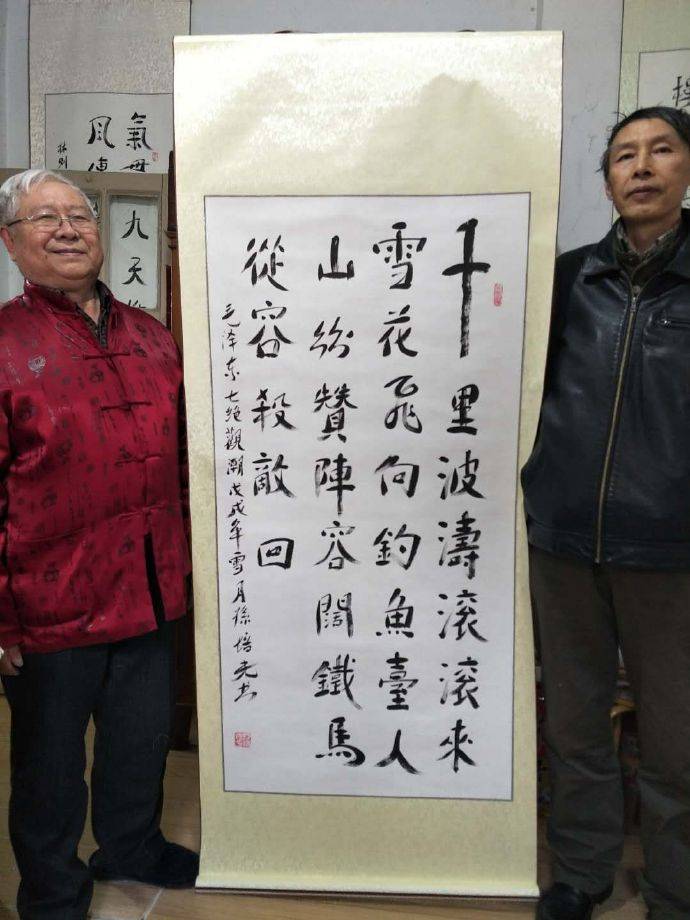 千里波濤滾滾來
雪花飛向釣魚臺人
山紛贊陣容闊鐵馬
從容殺敵回
毛泽东七绝觀潮戊戌年雪月孫培书
氣
風
九天